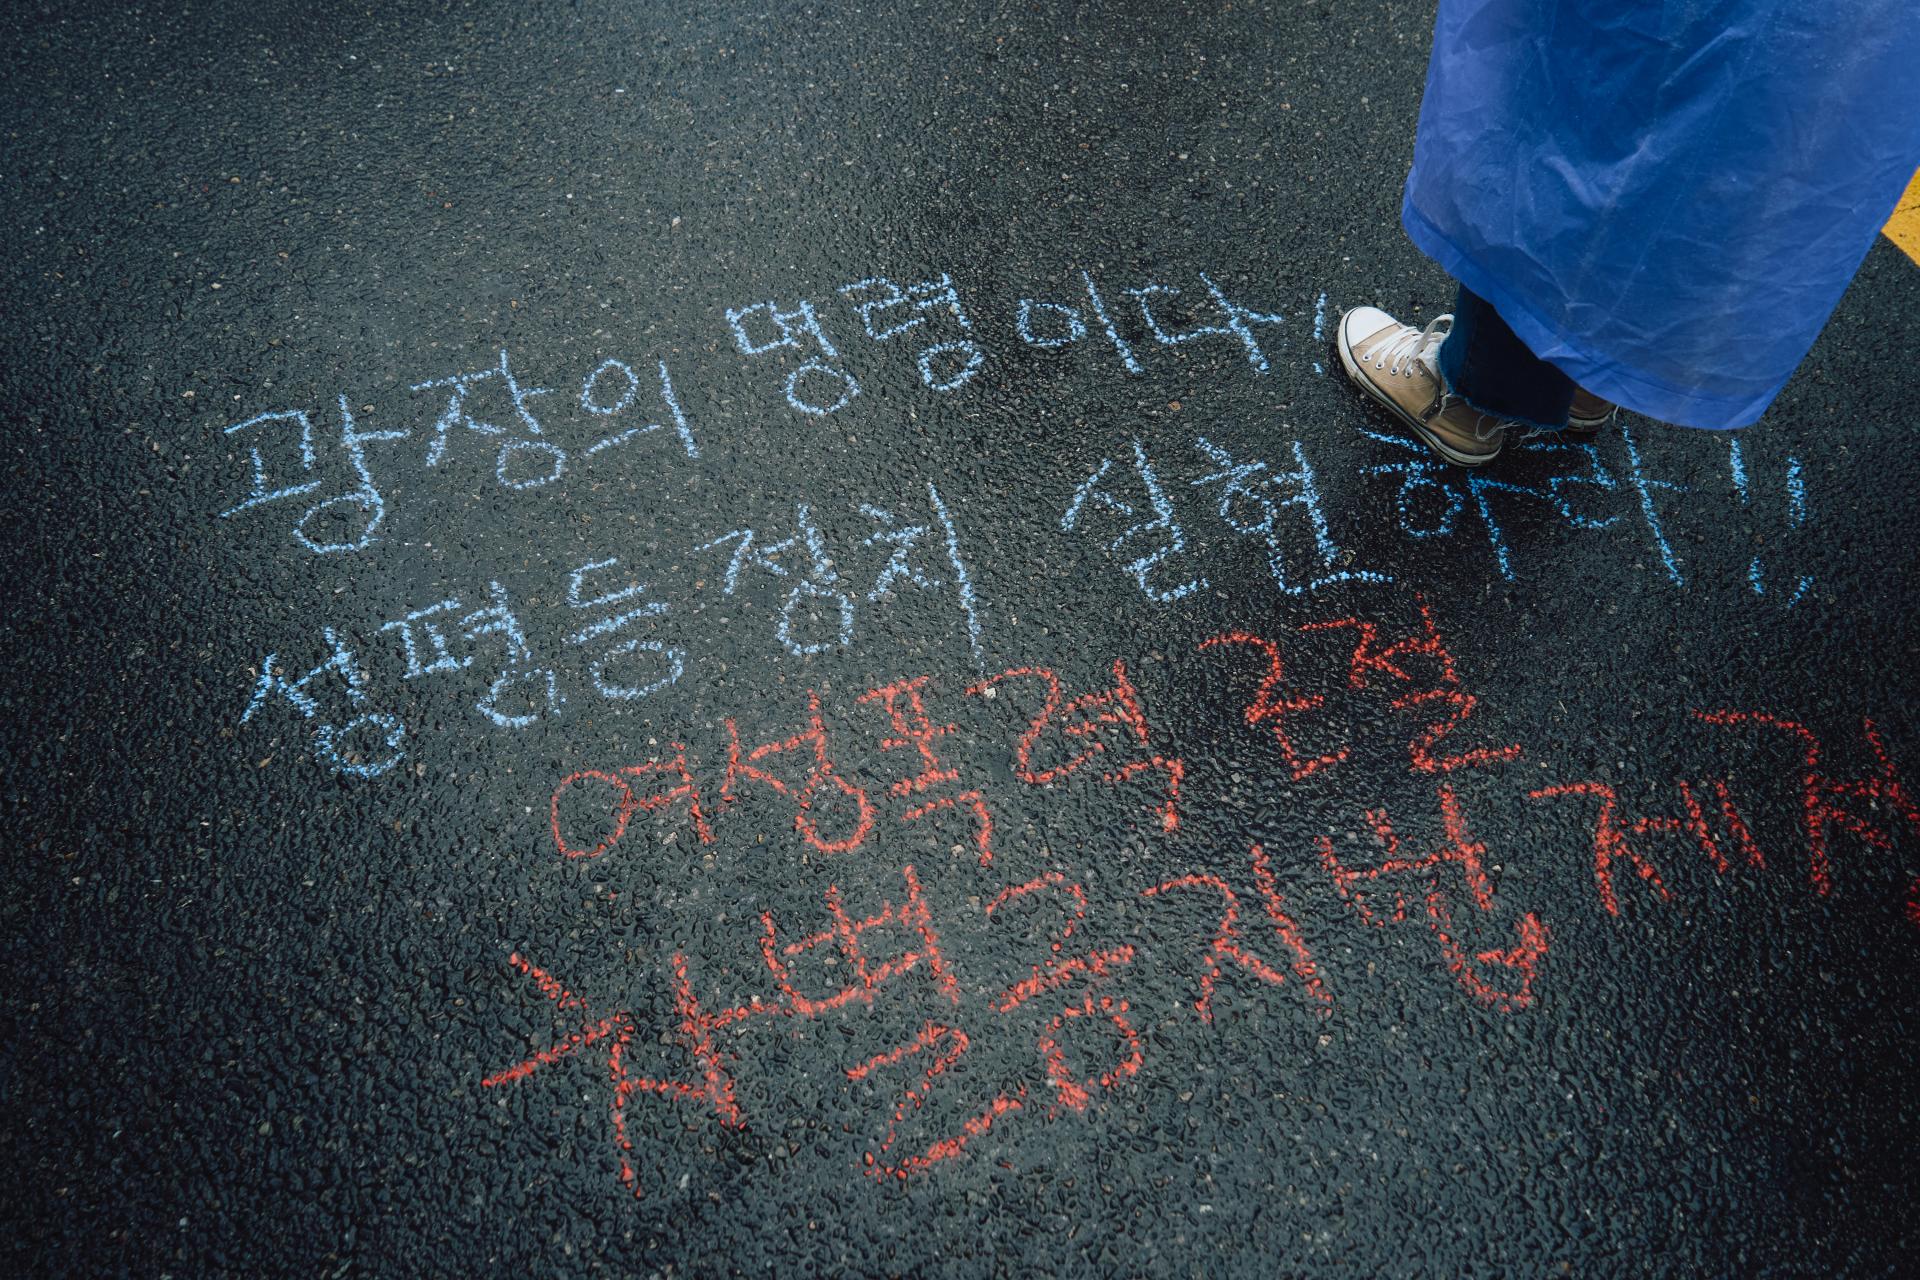 광장의 명령이다!
성평등 정치 실현하라!!
여성폭력 근절
차별금지법 제정